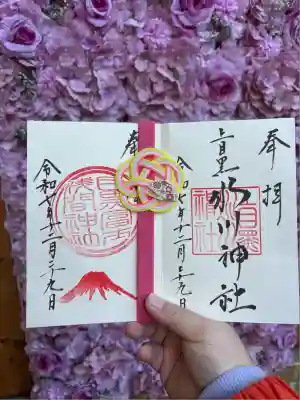 奉拝
上目黒氷川神社
令和七年十二月二十九日
奉
目黒富士
浅間神社
令和七年十二月二十九日